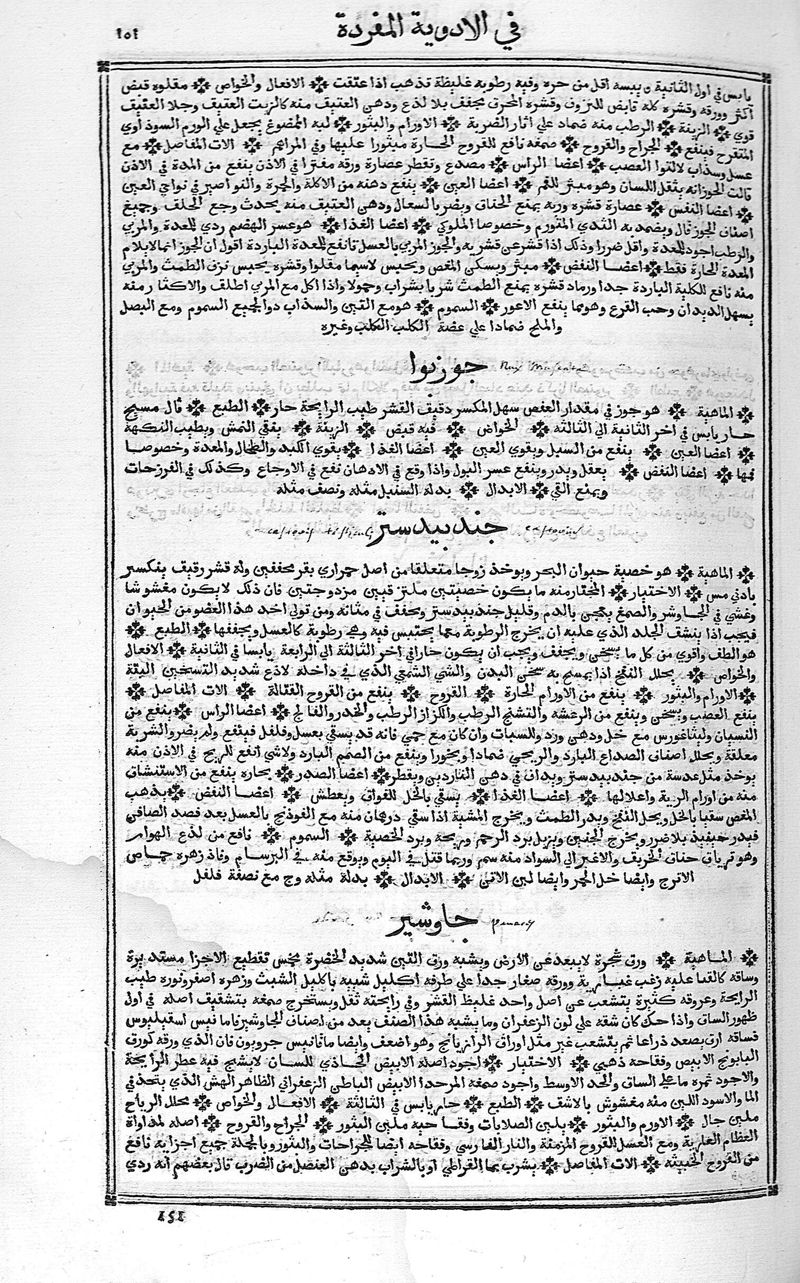 في الادوية المفردة
١٥١
يابس في اول الثانية ن يبسه اقل من حره وفيه رطوبه غليظة تذهب اذا عتقت ❖ الافعال والخواص ❖ مقلوه قبض
أكثر وورقه وقشره كله قابض للنزف وقشره المحرق مجفف بلا لذع ودهن العتيق منه كالزيت العتيق وجلا العتيق
قوي ❖ الزينة ❖ الرطب منه ضماد علي اثار الضربة ❖ الاورام والبثور ❖ لبه الممضوغ يجعل علي الورم السوداوي
المتقرح فينفع ❖ الجراح والقروح ❖ صمغه نافع للقروح الحارة منثورا عليها وفي المراهم ❖ الات المفاصل ❖ مع
عسل وسذاب لالتوا العصب ❖ اعضا الراس ❖ مصدع وتقطر عصارة ورقه مفترا في الاذن ينفع من المدة في الاذن
قالت الخوز انه يثقل اللسان وهو مبثر للفم ❖ اعضا العين ❖ ينفع دهنه من الاكلة والحمرة والنواصير في نواحي العين
❖ اعضا النفس ❖ عصارة قشره وربه يمنع الخناق ويضر بالسعال ودهن العتيق منه يحدث وجع الحلف وجميع
اصناف الجوز قال ويضمد به الثدي المتورم وخصوصا الملوكي ❖ اعضا الغذا ❖ هو عسر الهضم ردي للمعدة والمربي
والرطب اجود للمعدة واقل ضررا وذلك اذا قشر عن قشريه والجوز المربي بالعسل نافع للمعدة الباردة اقول ان الجوز انما لايلام
المعدة الحارة فقط ❖ اعضا النفض ❖ مبثر ويسكن المغص ويحبس لاسيما مقلوا وقشره يحبس نزف الطمث والمربي
منه نافع للكلية الباردة جدا ورماد قشره يمنع الطمث شربا بشراب وحمولا واذا اكل مع المربي اطلق والاكثار منه
يسهل الديدان وحب القرع وهو مما ينفع الاعور ❖ السموم ❖ هو مع التين والسذاب دوا لجميع السموم ومع البصل
والملح ضمادا علي عضة الكلب الكلب وغيره
جوزبوا
❖ الماهية ❖ هو جوز في مقدار العفص سهل المكسر دقيق القشر طيب الرايحة حار ❖ الطبع ❖ قال مسيح
حار يابس في اخر الثانية الي الثالثه ❖ الخواص ❖ فيه قبض ❖ الزينة ❖ ينقي النمش ويطيب النكهة
❖ اعضا العين ❖ ينفع من السبل ويقوي العين ❖ اعضا الغذا ❖ يقوي الكبد والطحال والمعدة وخصوصا
فمها ❖ اعضا النفض ❖ يعقل ويدر وينفع عسر البول واذا وقع في الادهان نفع في الاوجاع وكذلك في الفرزجات
ويمنع القي ❖ الابدال ❖ بدله السنبل مثله ونصف مثله
جندبيدستر castorium
❖ الماهية ❖ هو خصية حيوان البحر ويوخذ زوجا متعلقا من اصل
بادني مس ❖ الاختيار ❖ المختار منه ما يكون خصيتين ملتزقتين مزدوجتين فان ذلك لا يكون مغشوشا
وغشي في الجاوشير والصمغ يعجن بالدم وقليل جندبيدستر ويجفف في مثانة ومن تولي اخذ هذا العضو من الحيوان
فيجب اذا ينشف الجلد الذي عليه ان يخرج الرطوبة مما يحتبس فيه وهي رطوبة كالعسل ويجففها ❖ الطبع ❖
هو الطف واقوي من كل ما يسخن ويجفف ويجب ان يكون حارا في اخر الثالثة الي الرابعة يابسا في الثانية ❖ الافعال
والخواص ❖ يحلل النفخ اذا تمسح به سخن البدن والشي الشمعي الذي في داخله لاذع شديد التسخين البتة
❖ الاورام والبثور ❖ ينفع من الاورام الحارة ❖ القروح ❖ ينفع من القروح القتالة ❖ الات المفاصل ❖
ينفع العصب ويسخن وينفع من الرعشه والتشنج الرطب والكزاز الرطب والخدر والفالج ❖ اعضا الراس ❖ ينفع من
النسيان وليثاغورس مع خل ودهن ورد والسبات وان كان مع حمي فانه قد يسقي بعسل وفلفل فينفع ولم يضر والشربة
معلقة ويحلل اصناف الصداع البارد والريحي ضمادا وبخورا وينفع من الصمم البارد ولاشي انفع للريح في الاذن منه
يوخذ مثل عدسة من جندبيدستر ويداف في دهن الناردين ويقطر ❖ اعضا الصدر ❖ بخاره ينفع من الاستنشاق
منه من اورام الرية واعلالها ❖ اعضا الغذا ❖ يسقي بالخل للفواق ويعطش ❖ اعضا النفض ❖ يذهب
المغص سقيا بالخل ويحل النفخ ويدر الطمث ويخرج المشيمة اذا سقي درهمان منه مع الفوذنج بالعسل بعد فصد الصافن
فيدر حينيذ بلا ضرر ويخرج الجنين ويزيل برد الرحم وريحه وبرد الخصية ❖ السموم ❖ نافع من لذع الهوام
وهو ترياق خناق الخربق والاغبر الي السواد منه سم وربما قتل في اليوم ويوقع منه في البرسام وفاذزهره حماض
الاترج وايضا خل الخمر وايضا لبن الاتن ❖ الابدال ❖ بدلة مثله وج مع نصفة فلفل
جاوشير
❖ الماهية ❖ ورق شجرة لايبعد عن الارض ويشبه ورق التين شديد الخضرة مخمس تقطيع الاجزا مستديرة
وساقه كالقنا عليه زغب غبارية وورقه صغار جدا علي طرفه اكليل شبيه باكليل الشبث وزهره اصفر ونوره طيب
الرايحة وعروقه كثيرة يتشعب عن اصل واحد غليظ القشر وفي رايحته ثقل ويستخرج صمغه بتشقيف اصله في اول
ظهور الساق واذا حك كان شقه علي لون الزعفران وما يشبه هذا الصنف يعد من اصناف الجاوشير فاما نيس اسقيليوس
فساقه ارق يصعد ذراعا ثم يتشعب عير مثل اوراق الرازيانج وهو اضعف وايضا مافانيس حروبون فان الذي ورقه كورق
البابونج الابيض وفقاحه ذهبي ❖ الاختيار ❖ اجود اصله الابيض الحاذي للسان لايشنج فيه عطر الرايحة
والاجود ثمره ما علي الساق والحد الاوسط واجود صمغه المر جدا الابيض الباطن الزعفراني الظاهر الهش الذي يتحد في
الما والاسود اللين منه مغشوش بالاشف ❖ الطبع ❖ حار يابس في الثالثة ❖ الافعال والخواص ❖ يحلل الرياح
ملين جال ❖ الاورم والبثور ❖ يلين الصلابات وفقاحه ملين البثور ❖ الجراح والقروح ❖ اصله لمداواة
العظام العارية ومع العسل للقروح المزمنة والنار الفارسي وفقاحه ايضا للجراحات والبثور وبالجملة جميع اجزايه نافع
من القروح الخبيثه ❖ الات المفاصل ❖ يشرب بما القراطن او بالشراب بدهن العنصل من الضرب قال بعضهم انه ردي
151